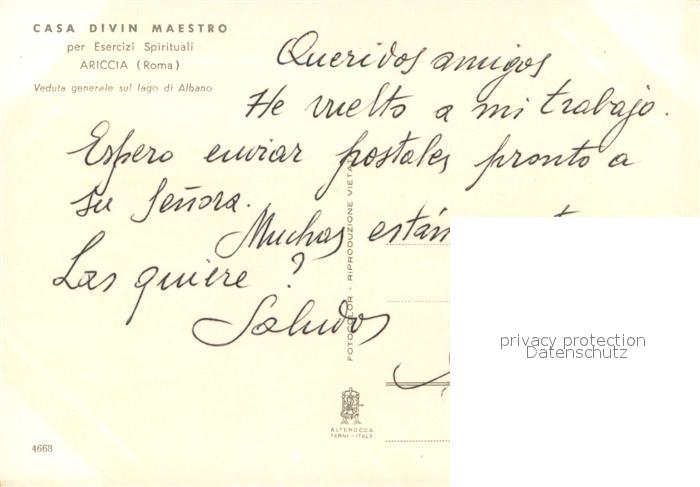 CASA DIVIN MAESTRO
per Esercizi Spirituali
ARICCIA (Roma)
Veduta generale sul lago di Albano
Queridos amigos
He vuelto a mi trabajo.
Espero enviar postales pronto a
su Señora.
Muchas están
Las quiere?
Saludos
FOTOCOLOR - RIPRODUZIONE VIETA
privacy protection
Datenschutz
ALTEROCCA
TERNI - ITALY
4668